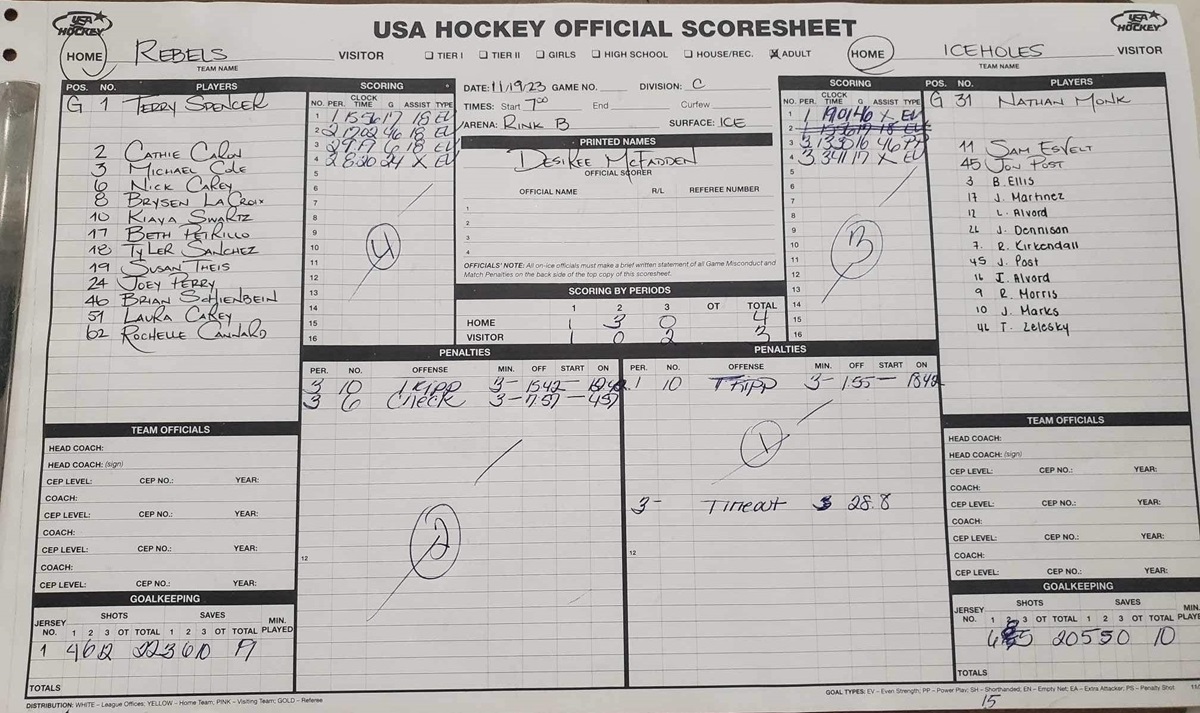 USA HOCKEY
USA HOCKEY OFFICIAL SCORESHEET
USA HOCKEY
HOME REBELS VISITOR
TEAM NAME
TIER I TIER II GIRLS HIGH SCHOOL HOUSE/REC. ADULT
HOME ICEHOLES VISITOR
TEAM NAME
POS. NO. PLAYERS
G 1 TERRY SPENCER
2 CATHIE CARON
3 MICHAEL COLE
6 NICK CAREY
8 BRYSEN LACROIX
10 KIAYA SWARTZ
17 BETH PETRILLO
18 TYLER SANCHEZ
19 SUSAN THEIS
24 JOEY PERRY
46 BRIAN SCHIENBEIN
51 LAURA CAREY
62 ROCHELLE CANNARD
SCORING
NO. PER. CLOCK TIME G ASSIST TYPE
1 1 1556 17 18 EV
2 2 1702 46 18 EV
3 2 919 6 18 EV
4 2 820 24 X EV
5
6
7
8
9
10
11
12
13
14
15
16
4
DATE: 11/19/23 GAME NO. DIVISION: C
TIMES: Start 7:00 End Curfew
ARENA: RINK B SURFACE: ICE
PRINTED NAMES
DESIREE MCFADDEN
OFFICIAL SCORER
OFFICIAL NAME R/L REFEREE NUMBER
1
2
3
4
OFFICIALS' NOTE: All on-ice officials must make a brief written statement of all Game Misconduct and
Match Penalties on the back side of the top copy of this scoresheet.
SCORING BY PERIODS
1 2 3 OT TOTAL
HOME 1 3 0 4
VISITOR 1 0 2 3
SCORING
NO. PER. CLOCK TIME G ASSIST TYPE
1 1 1901 46 X EV
2
3 3 1330 16 46 PP
4 3 341 17 X EV
5
6
7
8
9
10
11
12
13
14
15
16
3
POS. NO. PLAYERS
G 31 NATHAN MONK
11 SAM ESVELT
45 JON POST
3 B. Ellis
17 J. Martinez
12 L. Alvord
26 J. Dennison
7. R. Kirkendall
45 J. Post
16 I. Alvord
9 R. Morris
10 J. Marks
46 T. Lelesky
PENALTIES
PER. NO. OFFENSE MIN. OFF START ON
3 10 TRIPP 3- 1542 -
3 6 CHECK 3- 757 - 457
2
12
PENALTIES
PER. NO. OFFENSE MIN. OFF START ON
1 10 TRIPP 3- 155 -
1
3- Timeout 28.8
12
TEAM OFFICIALS
HEAD COACH:
HEAD COACH: (sign)
CEP LEVEL: CEP NO.: YEAR:
COACH:
CEP LEVEL: CEP NO.: YEAR:
COACH:
CEP LEVEL: CEP NO.: YEAR:
COACH:
CEP LEVEL: CEP NO.: YEAR:
GOALKEEPING
SHOTS SAVES
JERSEY NO. 1 2 3 OT TOTAL 1 2 3 OT TOTAL MIN. PLAYED
1 4 6 12 22 3 6 10 19
TOTALS
TEAM OFFICIALS
HEAD COACH:
HEAD COACH: (sign)
CEP LEVEL: CEP NO.: YEAR:
COACH:
CEP LEVEL: CEP NO.: YEAR:
COACH:
CEP LEVEL: CEP NO.: YEAR:
COACH:
CEP LEVEL: CEP NO.: YEAR:
GOALKEEPING
SHOTS SAVES
JERSEY NO. 1 2 3 OT TOTAL 1 2 3 OT TOTAL MIN. PLAYE
6 5 20 5 5 0 10
TOTALS
DISTRIBUTION: WHITE – League Offices; YELLOW – Home Team, PINK – Visiting Team; GOLD – Referee
GOAL TYPES: EV – Even Strength; PP – Power Play; SH – Shorthanded; EN – Empty Net; EA – Extra Attacker; PS – Penalty Shot
15